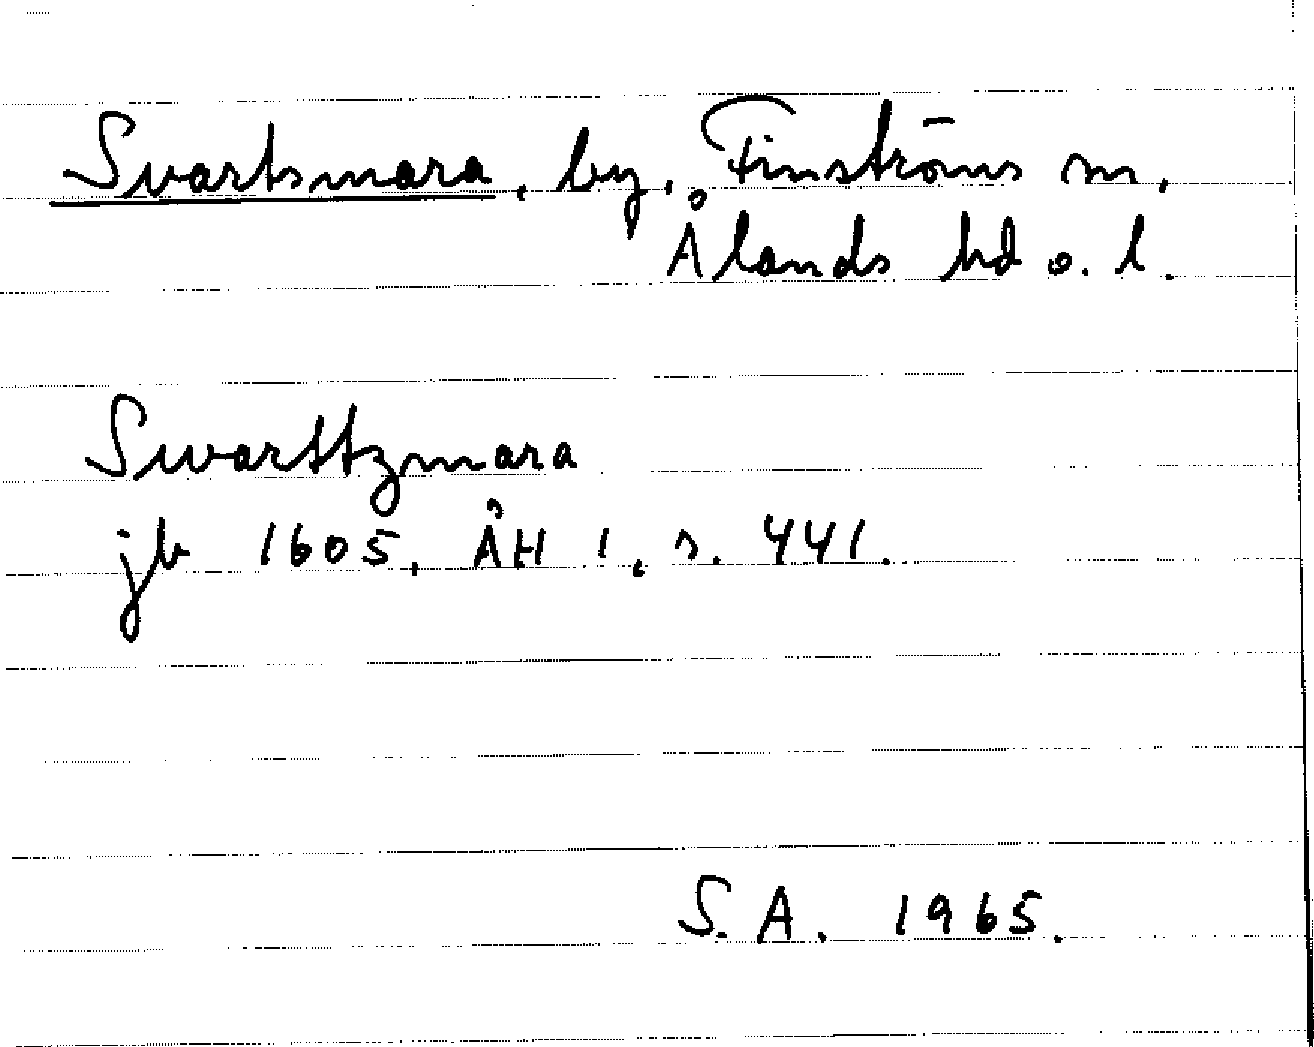 Svartsmara, by, Finströms sn,
Ålands hd o. l.
Swarttzmara
jb 1605, ÅH 1, s. 441.
S. A. 1965.